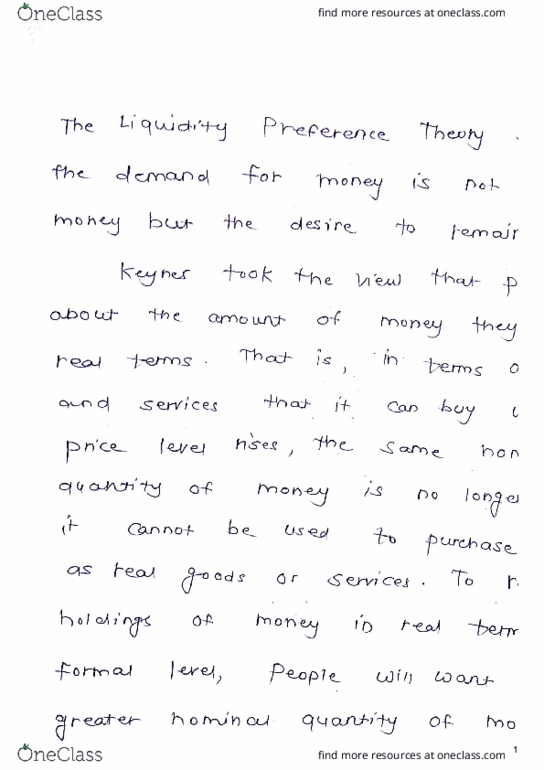 OneClass
find more resources at oneclass.com
The Liquidity Preference Theory .
the demand for money is not
money but the desire to remain
Keynes took the view that p
about the amount of money they
real terms. That is, in terms o
and services that it can buy
price level rises, the same nom
quantity of money is no longer
it cannot be used to purchase
as real goods or services. To r
holdings of money in real term
formal level, People will want
greater nominal quantity of mo
OneClass
find more resources at oneclass.com
1